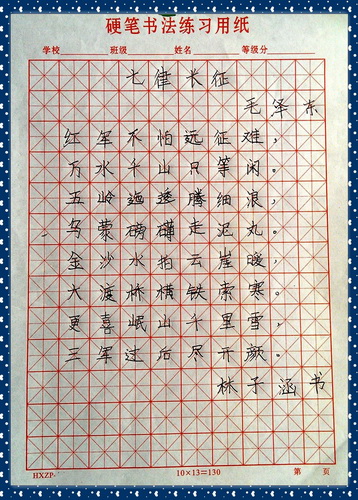 硬笔书法练习用纸
学校 班级 姓名 等级分
七律长征
毛泽东
红军不怕远征难，
万水千山只等闲。
五岭逶迤腾细浪，
乌蒙磅礴走泥丸。
金沙水拍云崖暖，
大渡桥横铁索寒。
更喜岷山千里雪，
三军过后尽开颜。
林子涵书
HXZP- 10×13=130 第 页